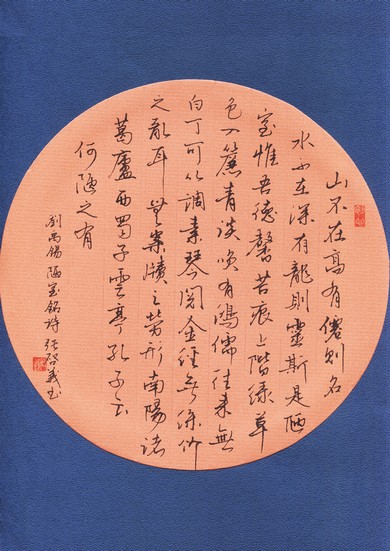 山不在高有僊则名
水不在深有龍則靈斯是陋
室惟吾德馨苔痕上階綠草
色入簾青談笑有鴻儒往来無
白丁可以調素琴閱金經無絲竹
之亂耳無案牘之勞形南陽諸
葛廬西蜀子雲亭孔子云
何陋之有
劉禹錫陋室銘詩張啓義书